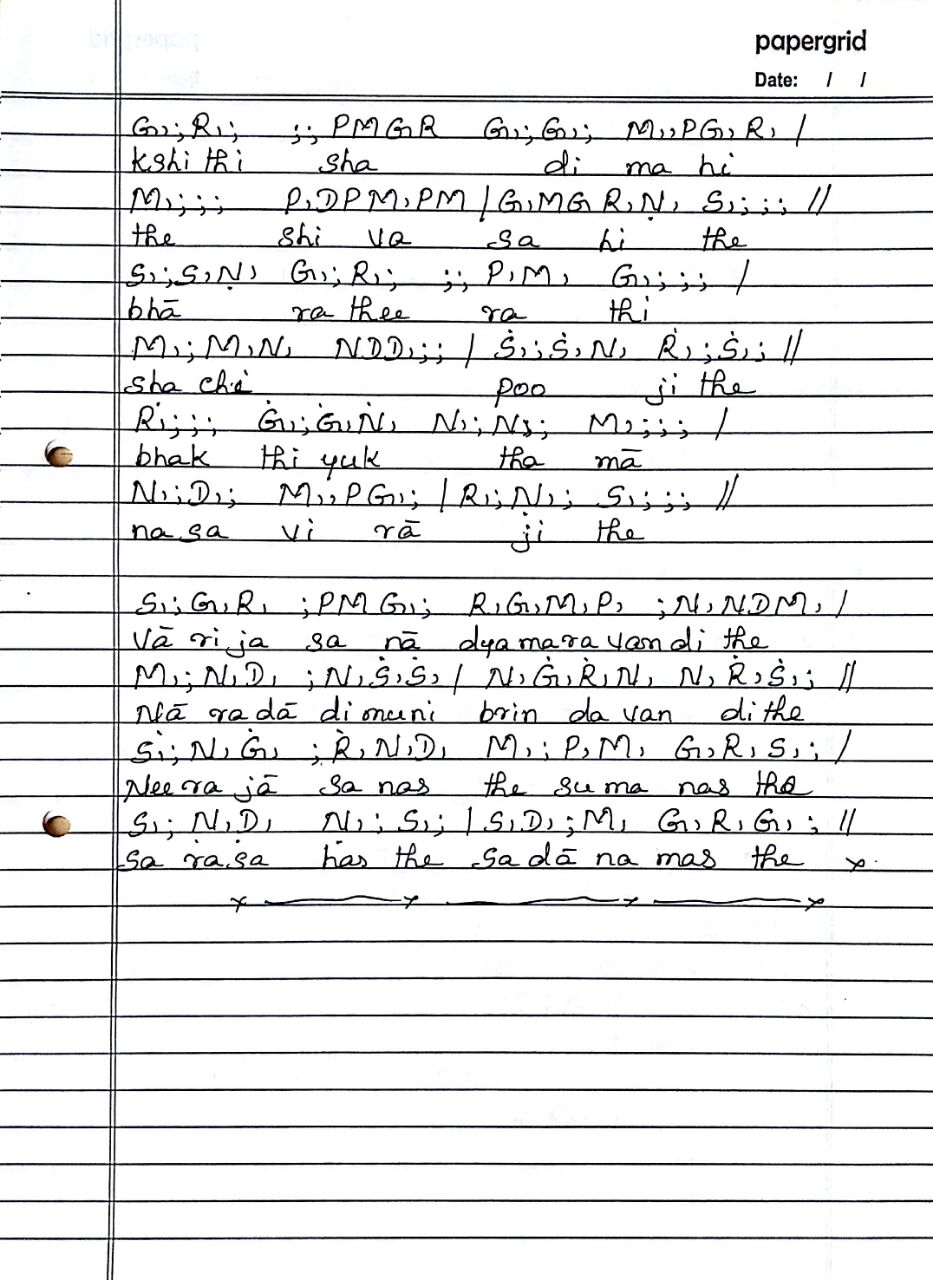 papergrid
Date: / /
G,;R,; ;;PMGR G,;G,; M,,PG,R, /
kshi thi sha di ma hi
M,;;; P,DPM,PM / G,MGR,Ṇ, S,;;; //
the shi va sa hi the
S,;S,Ṇ, G,;R,; ;;P,M, G,;;; /
bhā ra thee ra thi
M,;M,N, NDD,;; / Ṡ,;Ṡ,N, Ṙ,;Ṡ,; //
sha che poo ji the
Ṙ,;;; Ġ,;Ġ,Ṅ, N,;N,; M,;;; /
bhak thi yuk tha mā
N,;D,; M,,PG,; / R,;Ṇ,; S,;;; //
na sa vi rā ji the
S,;G,R, ;PMG,; R,G,M,P, ;N,NDM, /
Vā ri ja sa nā dya ma ra van di the
M,;N,D, ;N,Ṡ,Ṡ, / N,Ġ,Ṙ,N, N,Ṙ,Ṡ,; //
Nā ra dā di muni brin da van di the
Ṡ,;N,Ġ, ;Ṙ,N,D, M,;P,M, G,R,S,; /
Nee ra jā sa nas the su ma nas the
S,;Ṇ,Ḍ, Ṇ,;S,; / S,D,;M, G,R,G,; //
Sa ra sa has the sa dā na mas the x.